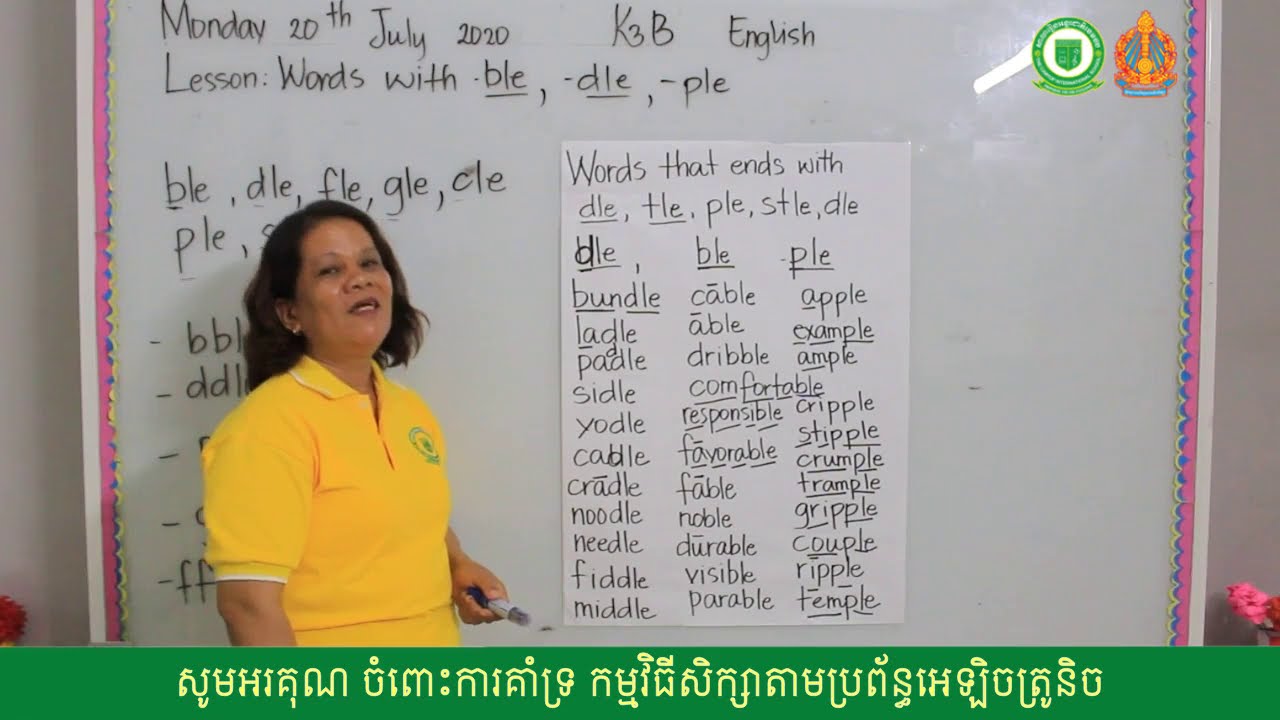 Monday 20th July 2020 K3B English
Lesson: Words with -ble, -dle, -ple
ble, dle, fle, gle, cle
ple,
Words that ends with
dle, tle, ple, stle, dle
dle, ble -ple
bundle cāble apple
ladle āble example
padle dribble ample
sidle comfortable
yodle responsible cripple
cadle fāvorable stipple
crādle fāble crumple
noodle noble trample
needle dūrable gripple
fiddle visible couple
middle parable ripple
temple
- bbl
- ddl
-
-
-ff
សូមអរគុណ ចំពោះការគាំទ្រ កម្មវិធីសិក្សាតាមប្រព័ន្ធអេឡិចត្រូនិច